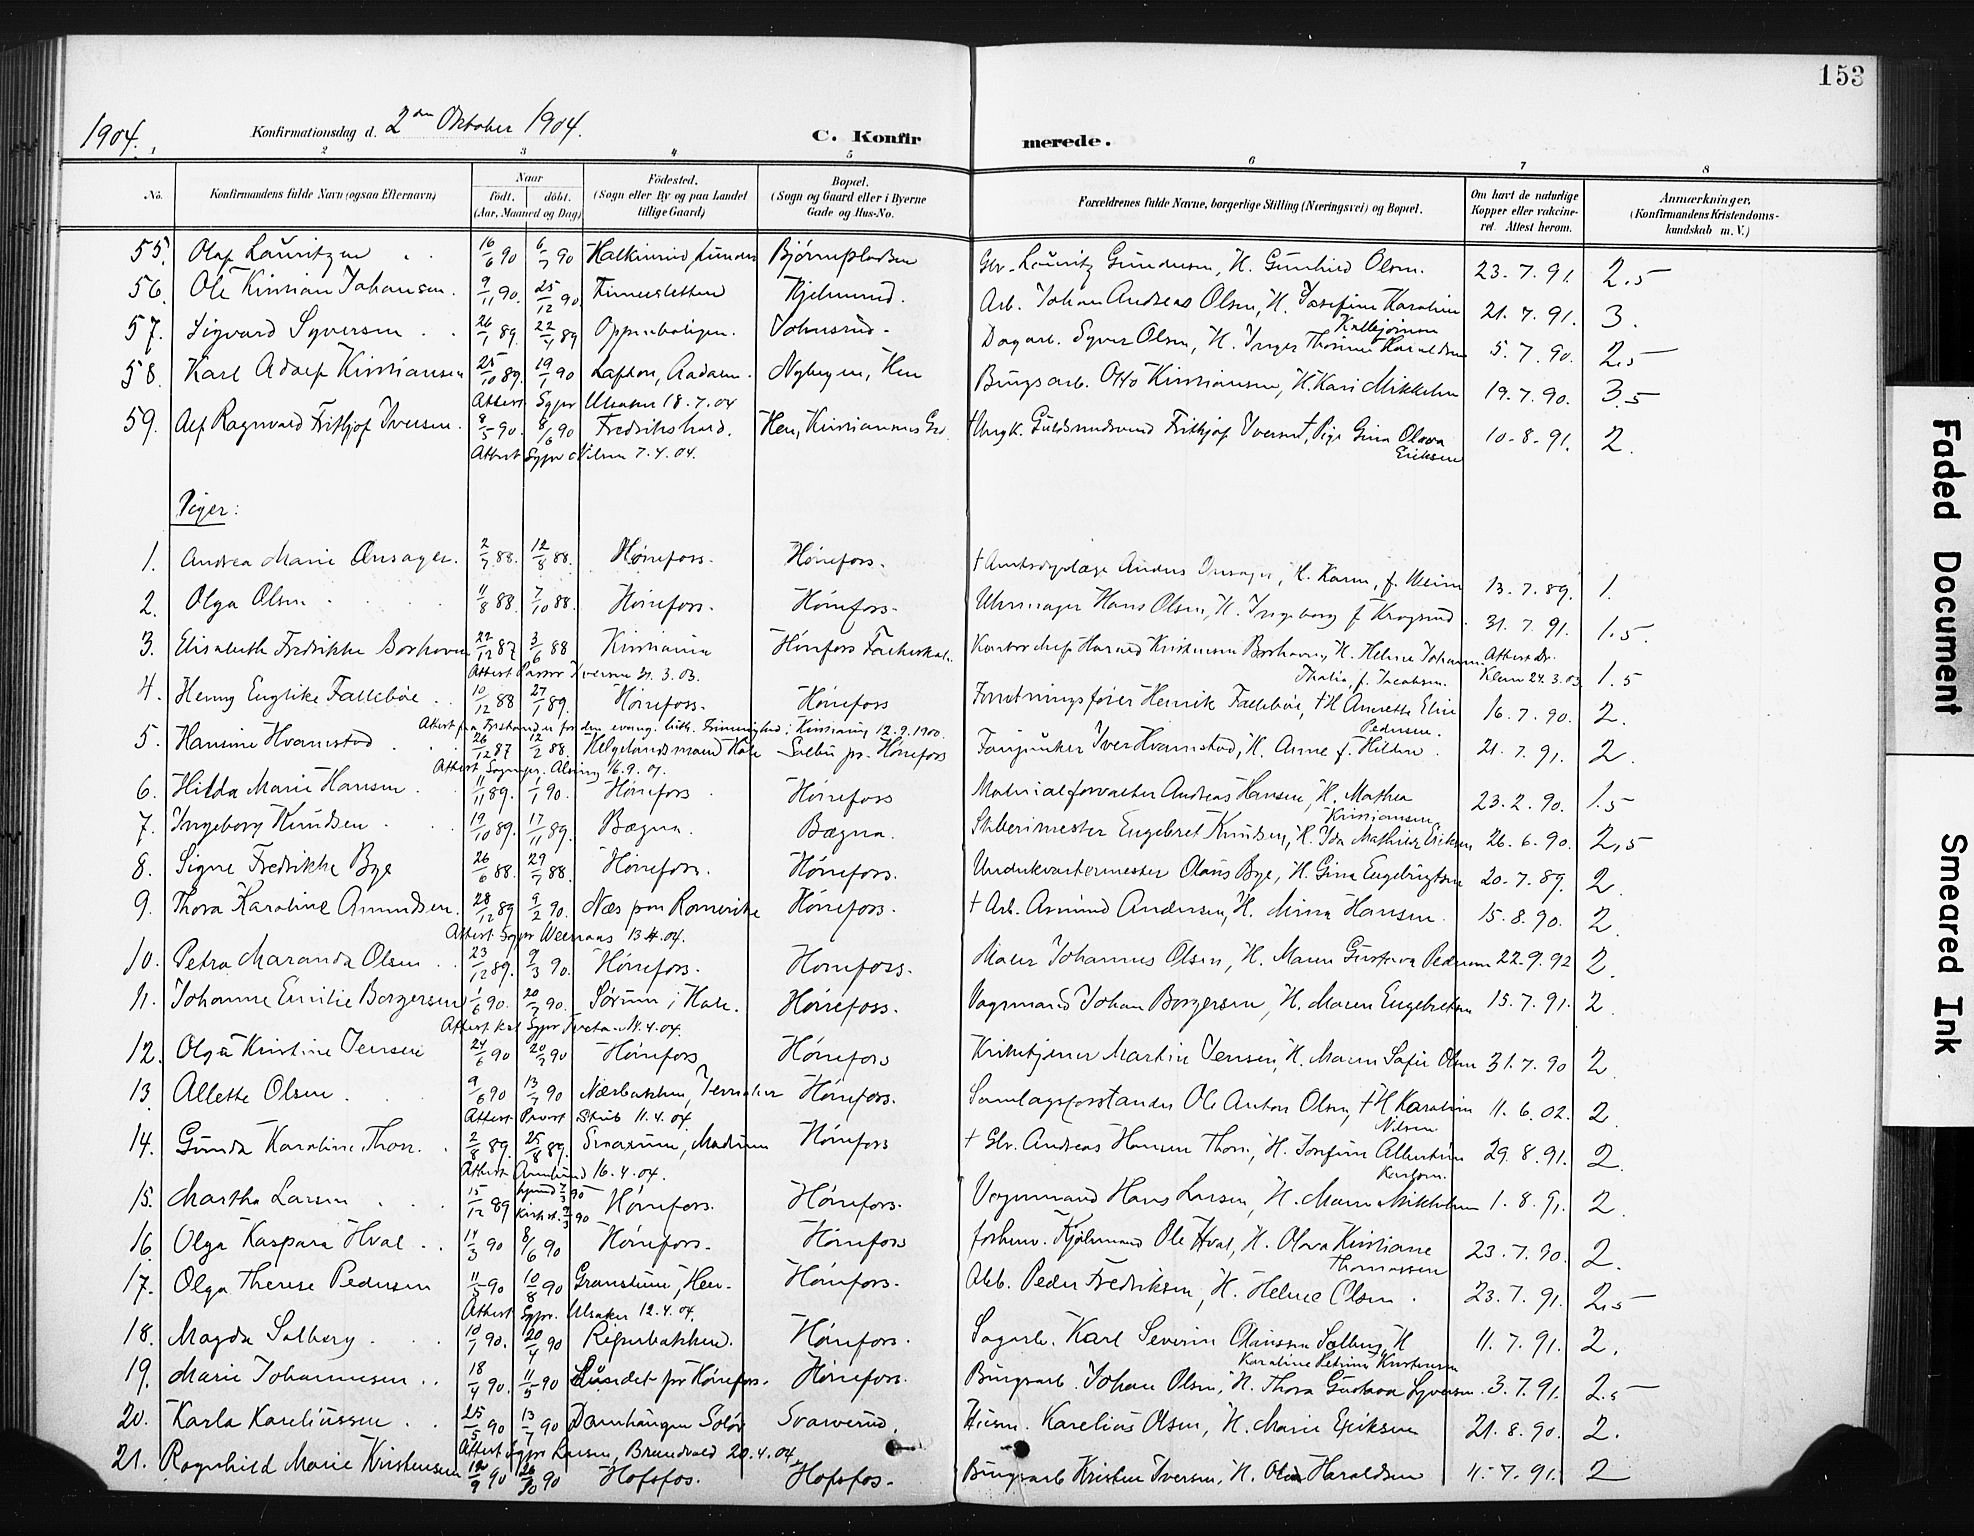 153
1904.
Konfirmationsdag d. 2den Oktober 1904.
C. Konfirmerede.
1 2 3 4 5 6 7 8
No. Konfirmandens fulde Navn (ogsaa Efternavn) Naar født. døbt. (Aar, Maaned og Dag) Fødested. (Sogn eller By og paa Landet tillige Gaard) Bopæl. (Sogn og Gaard eller i Byerne Gade og Hus-No. Forældrenes fulde Navne, borgerlige Stilling (Næringsvei) og Bopæl. Om havt de naturlige Kopper eller vakcineret. Attest herom. Anmærkninger. (Konfirmandens Kristendomskundskab m. V.)
55. Olaf Lauritzen 16/6 90 6/7 90 Bjørnepladsen Lauritz Gundersen, H. Gunhild Olsen. 23.7.91. 2.5
56. Ole Kristian Johansen. 9/11 90. 25/12 90 Finnesletten Hjelmerud. Arb. Johan Andreas Olsen, H. Josefine Karoline 21.7.91. 3.
57. Sigvard Syversen 26/1 89. 22/4 89 Oppenboligen. Johnsrud. Dagarb. Syver Olsen, H. Inger Thorine Haraldsen 5.7.90. 2,5
58. Karl Adolf Kristiansen 25/10 89. 19/1 90 Aadalen. Nybyen, Hen Brugsarb. Otto Kristiansen, H. Kari Mikkelsen 19.7.90. 3.5
Attest Sgpr Ulsaker 18.7.04
59. Alf Ragnvald Frithjof Iversen. 8/5 90. 8/6 90 Fredrikshald. Hen, Kristiansens Gd. Frithjof Iversen, Pige Gina Olava Eriksen 10-8-91. 2.
Attest Sgpr Nilsen 7.4.04.
Piger:
1. Andrea Marie Onsager. 2/7 88. 12/8 88. Hønefoss. Hønefoss. † Amtsdyrlæge Anders Onsager, H. Karen, f. 13.7.89. 1.
2. Olga Olsen 11/8 88. 7/10 88. Hønefoss. Hønefoss. Uhrmager Hans Olsen, H. Ingeborg f. Krogsrud. 31.7.91. 1.5.
3. Elisabeth Fredrikke Borkoven 22/12 87 3/6 88 Kristiania Hønefoss Kontorchef Harald Kristensen Borkoven, H. Helene Johanne Thalia, f. Jacobsen. Attest Dr. Klem 24.3.03. 1.5
Attest Pastor Iversen 31.3.03.
4. Henny Englike Fallebøe 10/12 88 27/1 89. Hønefoss. Hønefoss Forretningsfører Henrik Fallebøe, † H Annette Elise Pedersen. 16.7.90. 2.
Attest fra Forstander for den evang. luth. Frimenighed i Kristiania 12.9.1900.
5. Hansine Hvamstad 26/12 87 12/2 88. Helgelandsmoen Hole Solbu pr. Hønefoss Fanjunker Iver Hvamstad, H. Anne f. Hilden. 21.7.91. 2.
Attest Sognepr. Alsing 16.9.01.
6. Hilda Marie Hansen 11/11 89. 1/1 90. Hønefoss. Hønefoss Materialforvalter Andreas Hansen, H. Mathea Kristiansen 23.2.90. 1.5
7. Ingeborg Knudsen 19/10 89. 17/11 89. Bægna. Bægna. Sliberimester Engebret Knudsen, H. Ida Mathilde Eriksen 26.6.90. 2,5
8. Signe Fredrikke Bye 26/6 88. 29/7 88. Hønefoss. Hønefoss. Underkvartermester Olaus Bye, H. Gina Engebrigtsen 20.7.89. 2.
9. Thora Karoline Amundsen. 28/12 89 9/2 90. Næs paa Romerike Hønefoss. † Arb. Amund Andersen, H. Mina Hansen 15.8.90. 2.
Attest Sgpr 13.4.04.
10. Petra Maranda Olsen 23/12 89. 9/3 90. Hønefoss. Hønefoss. Maler Johannes Olsen, H. Maren Gustava Pedersen 22.9.92 2.
11. Johanne Emilie Borgersen 1/6 90. 20/7 90. Sørum i Hole. Hønefoss. Vognmand Johan Borgersen, H. Maren Engebretsen 15.7.91. 2.
Attest kal. Sgpr Tveten 11.4.04.
12. Olga Kristine Jensen 24/6 90 20/7 90 Hønefoss Hønefoss Kirketjener Martin Jensen, H. Maren Sofie Olsen 31.7.90 2.
13. Allette Olsen 9/6 90 13/7 90 Jevnaker Hønefoss. Samlagsforstander Ole Anton Olsen, † H Karoline Nilsen 11.6.02. 2.
Attest Provst Strøb 11.4.04.
14. Gunda Karoline Thon. 2/8 89. 25/8 89. Modum Hønefoss † Andreas Hansen Thon, H. Josefine Albertine Karlsen. 29.8.91. 2.
Attest 16.4.04.
15. Martha Larsen 15/12 89 Hønefoss. Hønefoss. Vognmand Hans Larsen, H. Maren Mikkelsen 1.8.91. 2.
16. Olga Kaspara Hval 14/3 90 8/6 90 Hønefoss. Hønefoss forhenv. Kjølmand Ole Hval, H. Olava Kristiane Thomassen 23.7.90. 2.
17. Olga Therese Pedersen 11/5 90 10/8 90 Granstuen, Hen. Hønefoss. Arb. Peder Fredriksen, H. Helene Olsen. 23.7.91. 2.5
Attest Sgpr. Ulsaker 12.4.04.
18. Magda Solberg 10/1 90. 20/4 90 Hønefoss. Sagarb. Karl Severin Olaussen Solberg, H Karoline Petrina Kristensen 11.7.91. 2.
19. Marie Johannesen 18/4 90. 11/5 90 Lundet pr Hønefoss. Hønefoss. Brugsarb. Johan Olsen, H. Thora Gustava Syversen. 3.7.91. 2.5
20. Karla Kareliussen 25/5 90 13/7 90 Solør Svarverud. Husm. Karelius Olsen, H. Marie Eriksen 21.8.90. 2.
Attest Sgpr Larsen, Brandvold 20.4.04.
21. Ragnhild Marie Kristensen 12/9 90 26/10 90 Hofsfos. Hofsfos. Brugsarb Kristen Iversen, H. Olea Haraldsen 11.7.91. 2
Faded Document
Smeared Ink